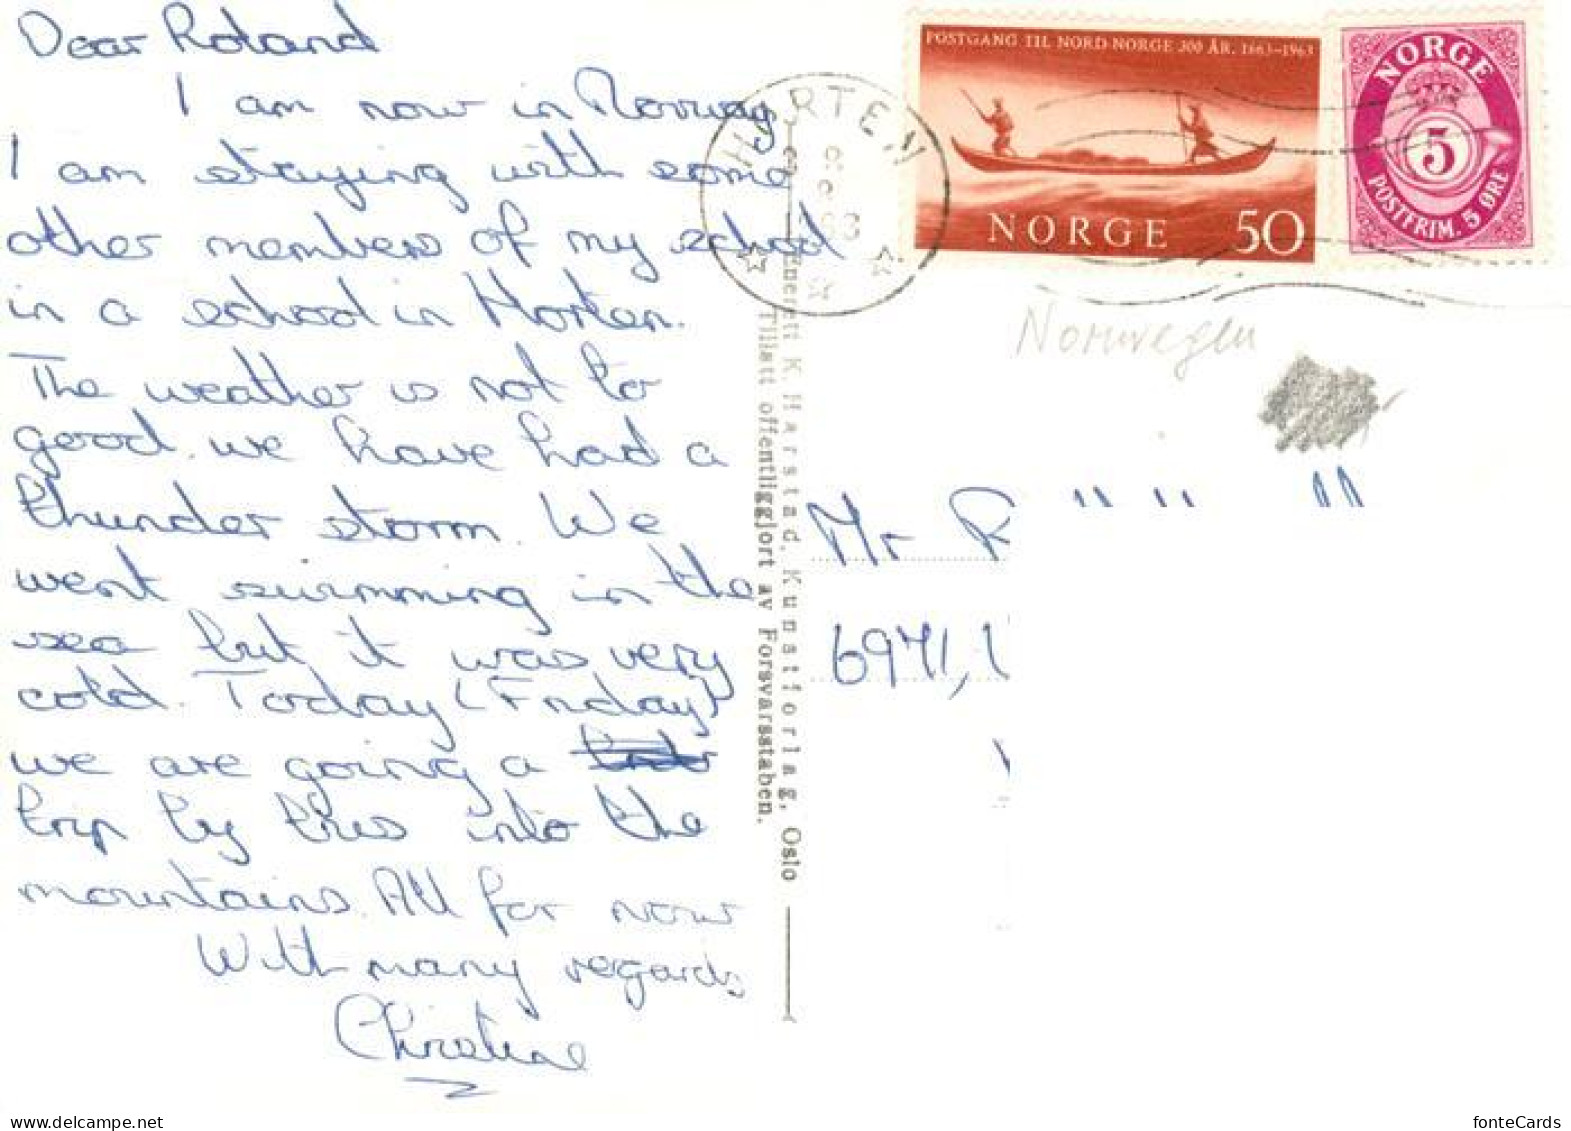 Dear Roland
I am now in Norway
I am staying with some
other members of my school
in a school in Horten.
The weather is not to
good. we have had a
thunder storm. We
went swimming in the
sea but it was very
cold. Today (Friday)
we are going a
trip by bus into the
mountains. All for now
With many regards
Christine
HORTEN
63
POSTGANG TIL NORD-NORGE 300 ÅR. 1663-1963
NORGE 50
NORGE
5
POSTFRIM. 5 ØRE
Norwegen
Enerett K. Harstad, Kunstforlag, Oslo
Tillatt offentliggjort av Forsvarsstaben.
Mr R
6971,
fonteCards